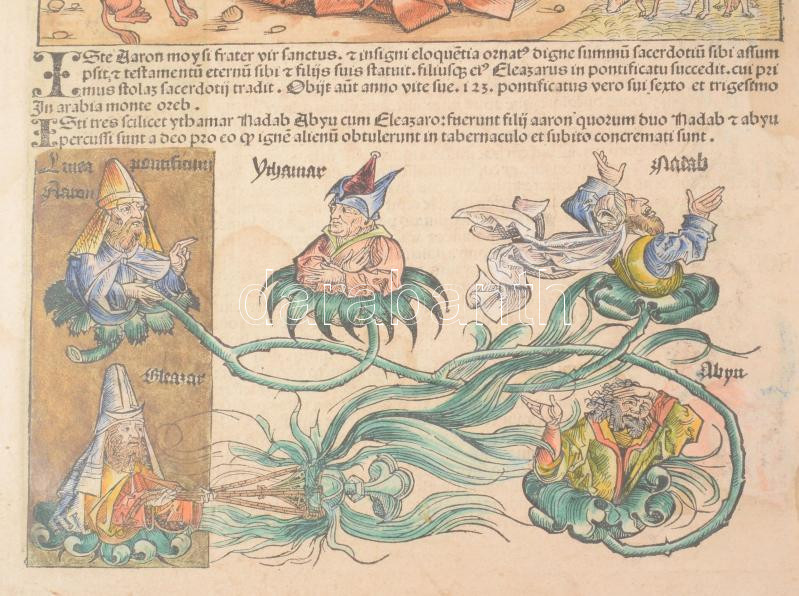 ISte Aaron moysi frater vir sanctus. ⁊ insigni eloquẽtia ornatꝰ digne summũ sacerdotiũ sibi assum
psit, ⁊ testamentũ eternũ sibi ⁊ filijs suis statuit. filiusqꝫ eiꝰ Eleazarus in pontificatu succedit. cui pri
mus stolaꝫ sacerdotij tradit. Obijt aũt anno vite sue. 123. pontificatus vero sui sexto et trigesimo
In arabia monte oreb.
ISti tres scilicet ythamar Nadab Abyu cum Eleazaro: fuerunt filij aaron quorum duo Nadab ⁊ abyu
percussi sunt a deo pro eo ꝙ ignẽ alienũ obtulerunt in tabernaculo et subito concremati sunt.
Linea pontificum
Aaron
Ythamar
Nadab
darabanth
Eleazar
Abyu